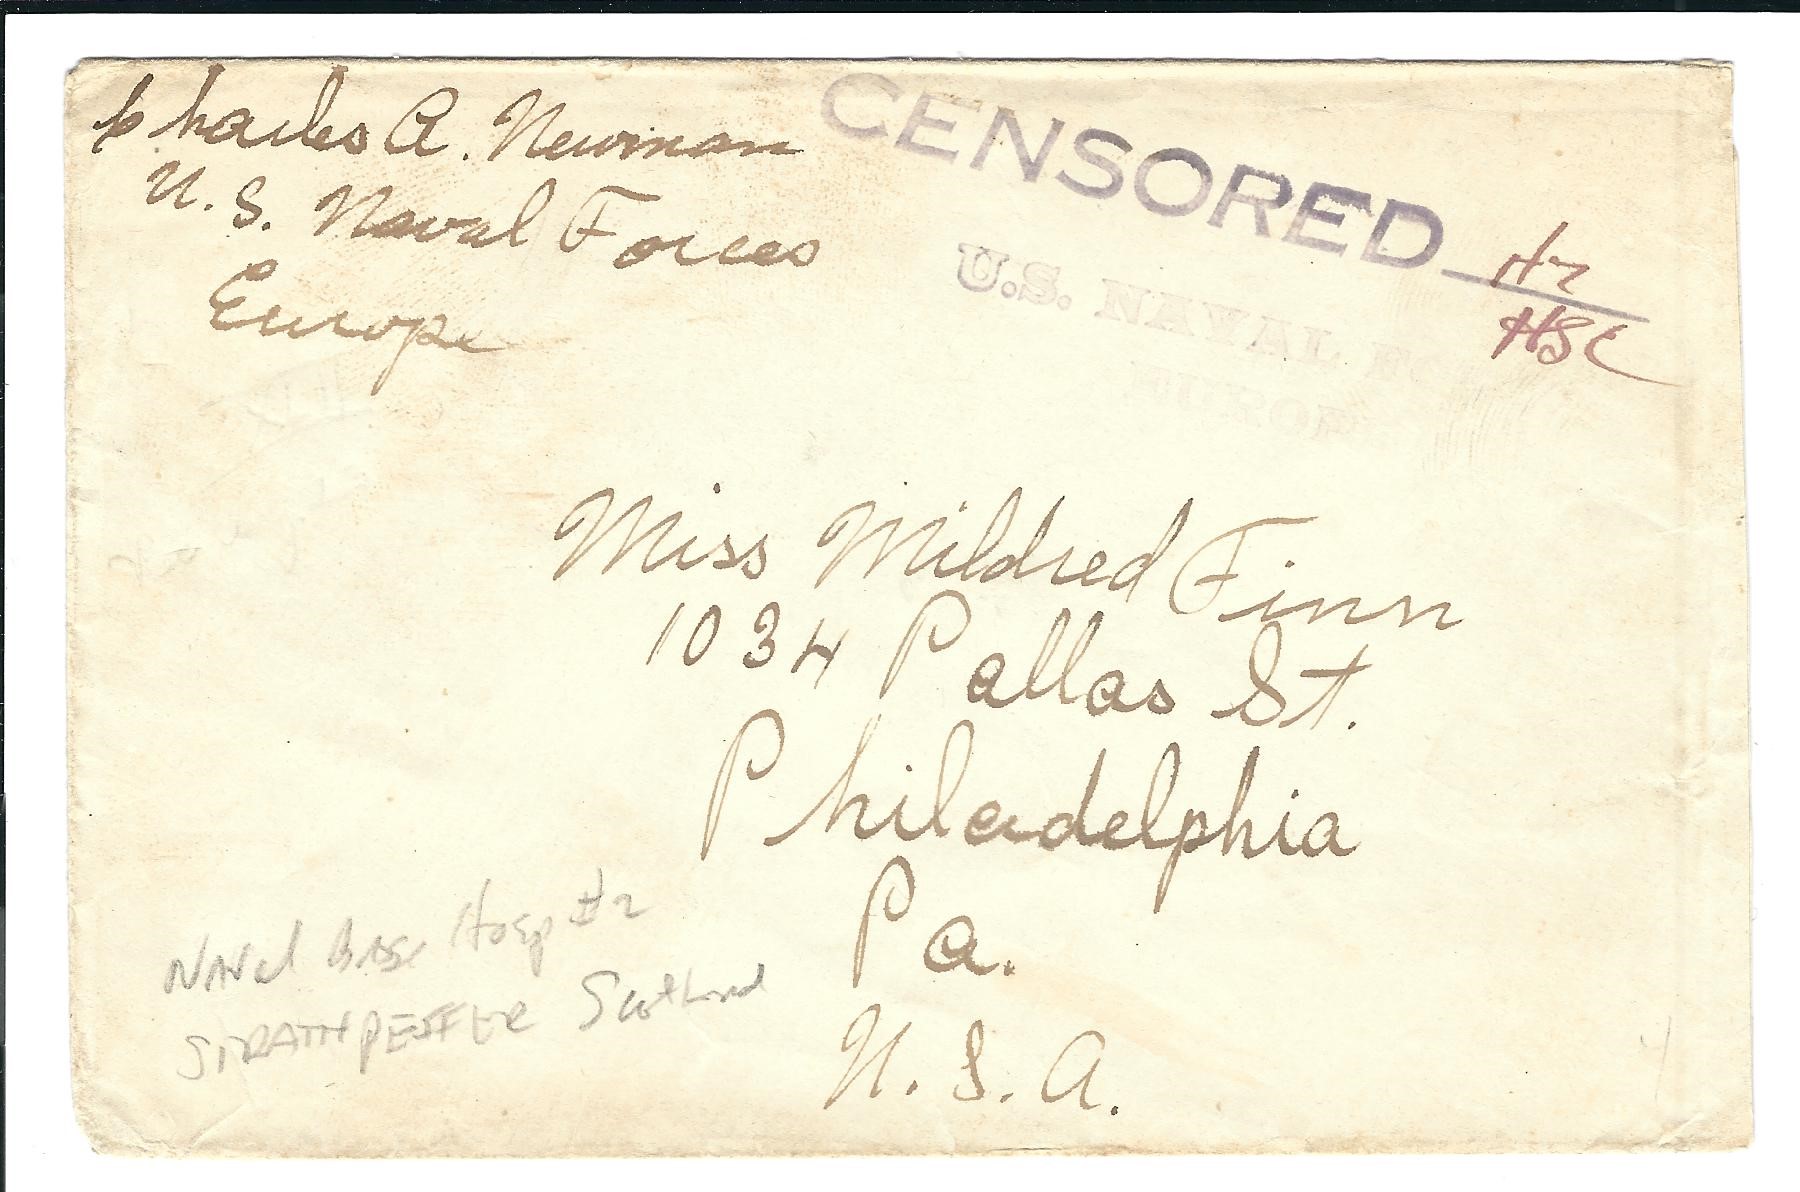 Charles A. Newman
U.S. Naval Forces
Europe
CENSORED
HSC
U.S. NAVAL
Miss Mildred Finn
1034 Pallas St.
Philadelphia
Pa.
U.S.A.
Naval Base Hosp #2
STRATHPEFFER Scotland